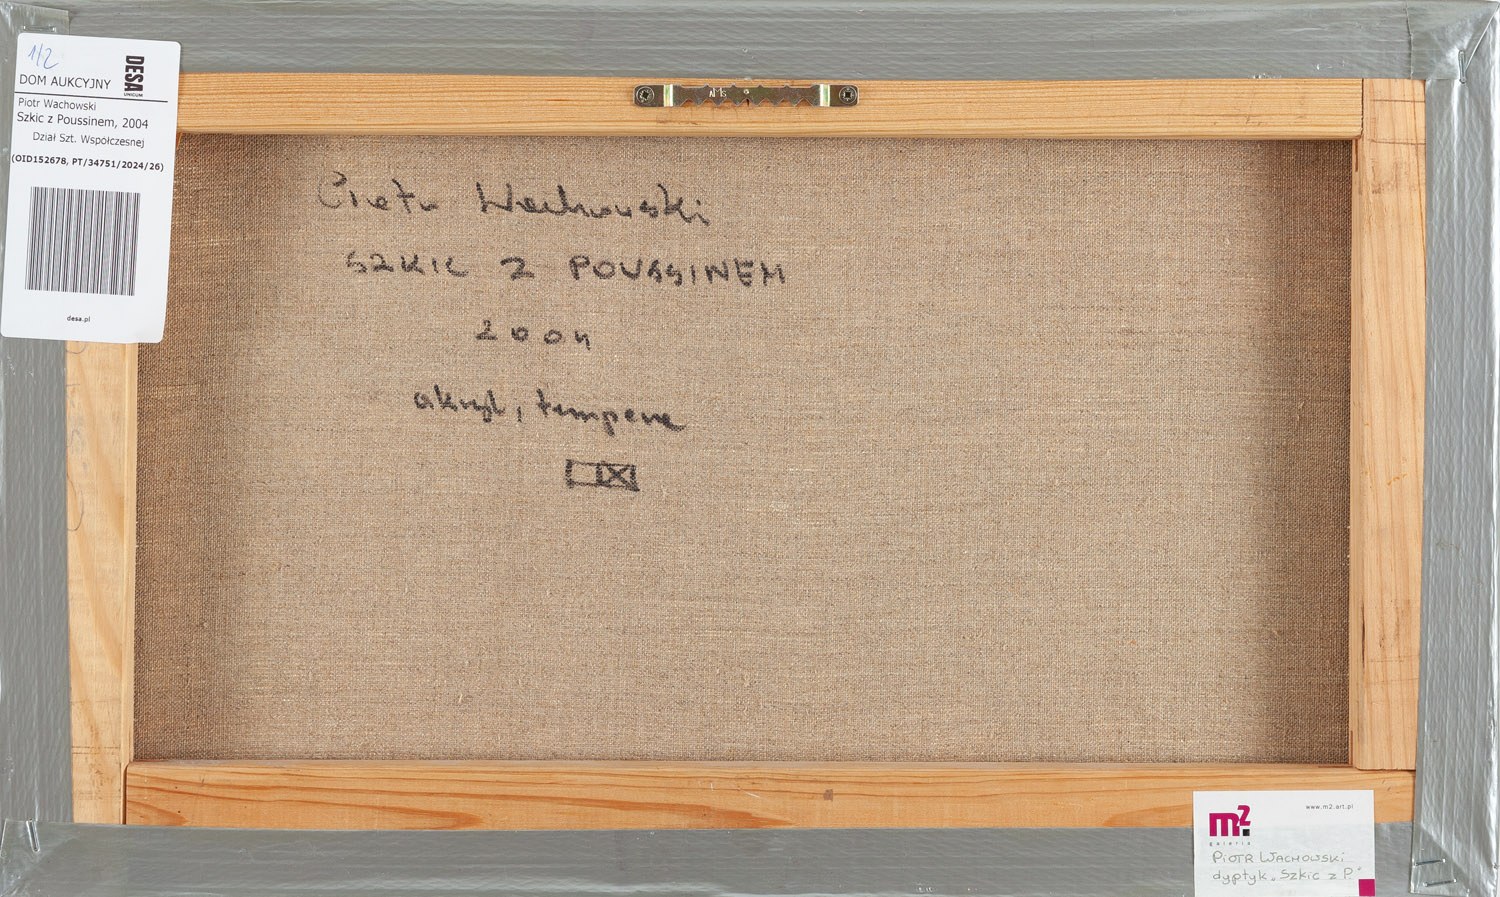 1/2
DOM AUKCYJNY
DESA
UNICUM
Piotr Wachowski
Szkic z Poussinem, 2004
Dział Szt. Współczesnej
(OID152678, PT/34751/2024/26)
desa.pl
Piotr Wachowski
SZKIC Z POUSSINEM
2004
akryl, tempera
www.m2.art.pl
m2
galeria
PIOTR WACHOWSKI
dyptyk „Szkic z P."